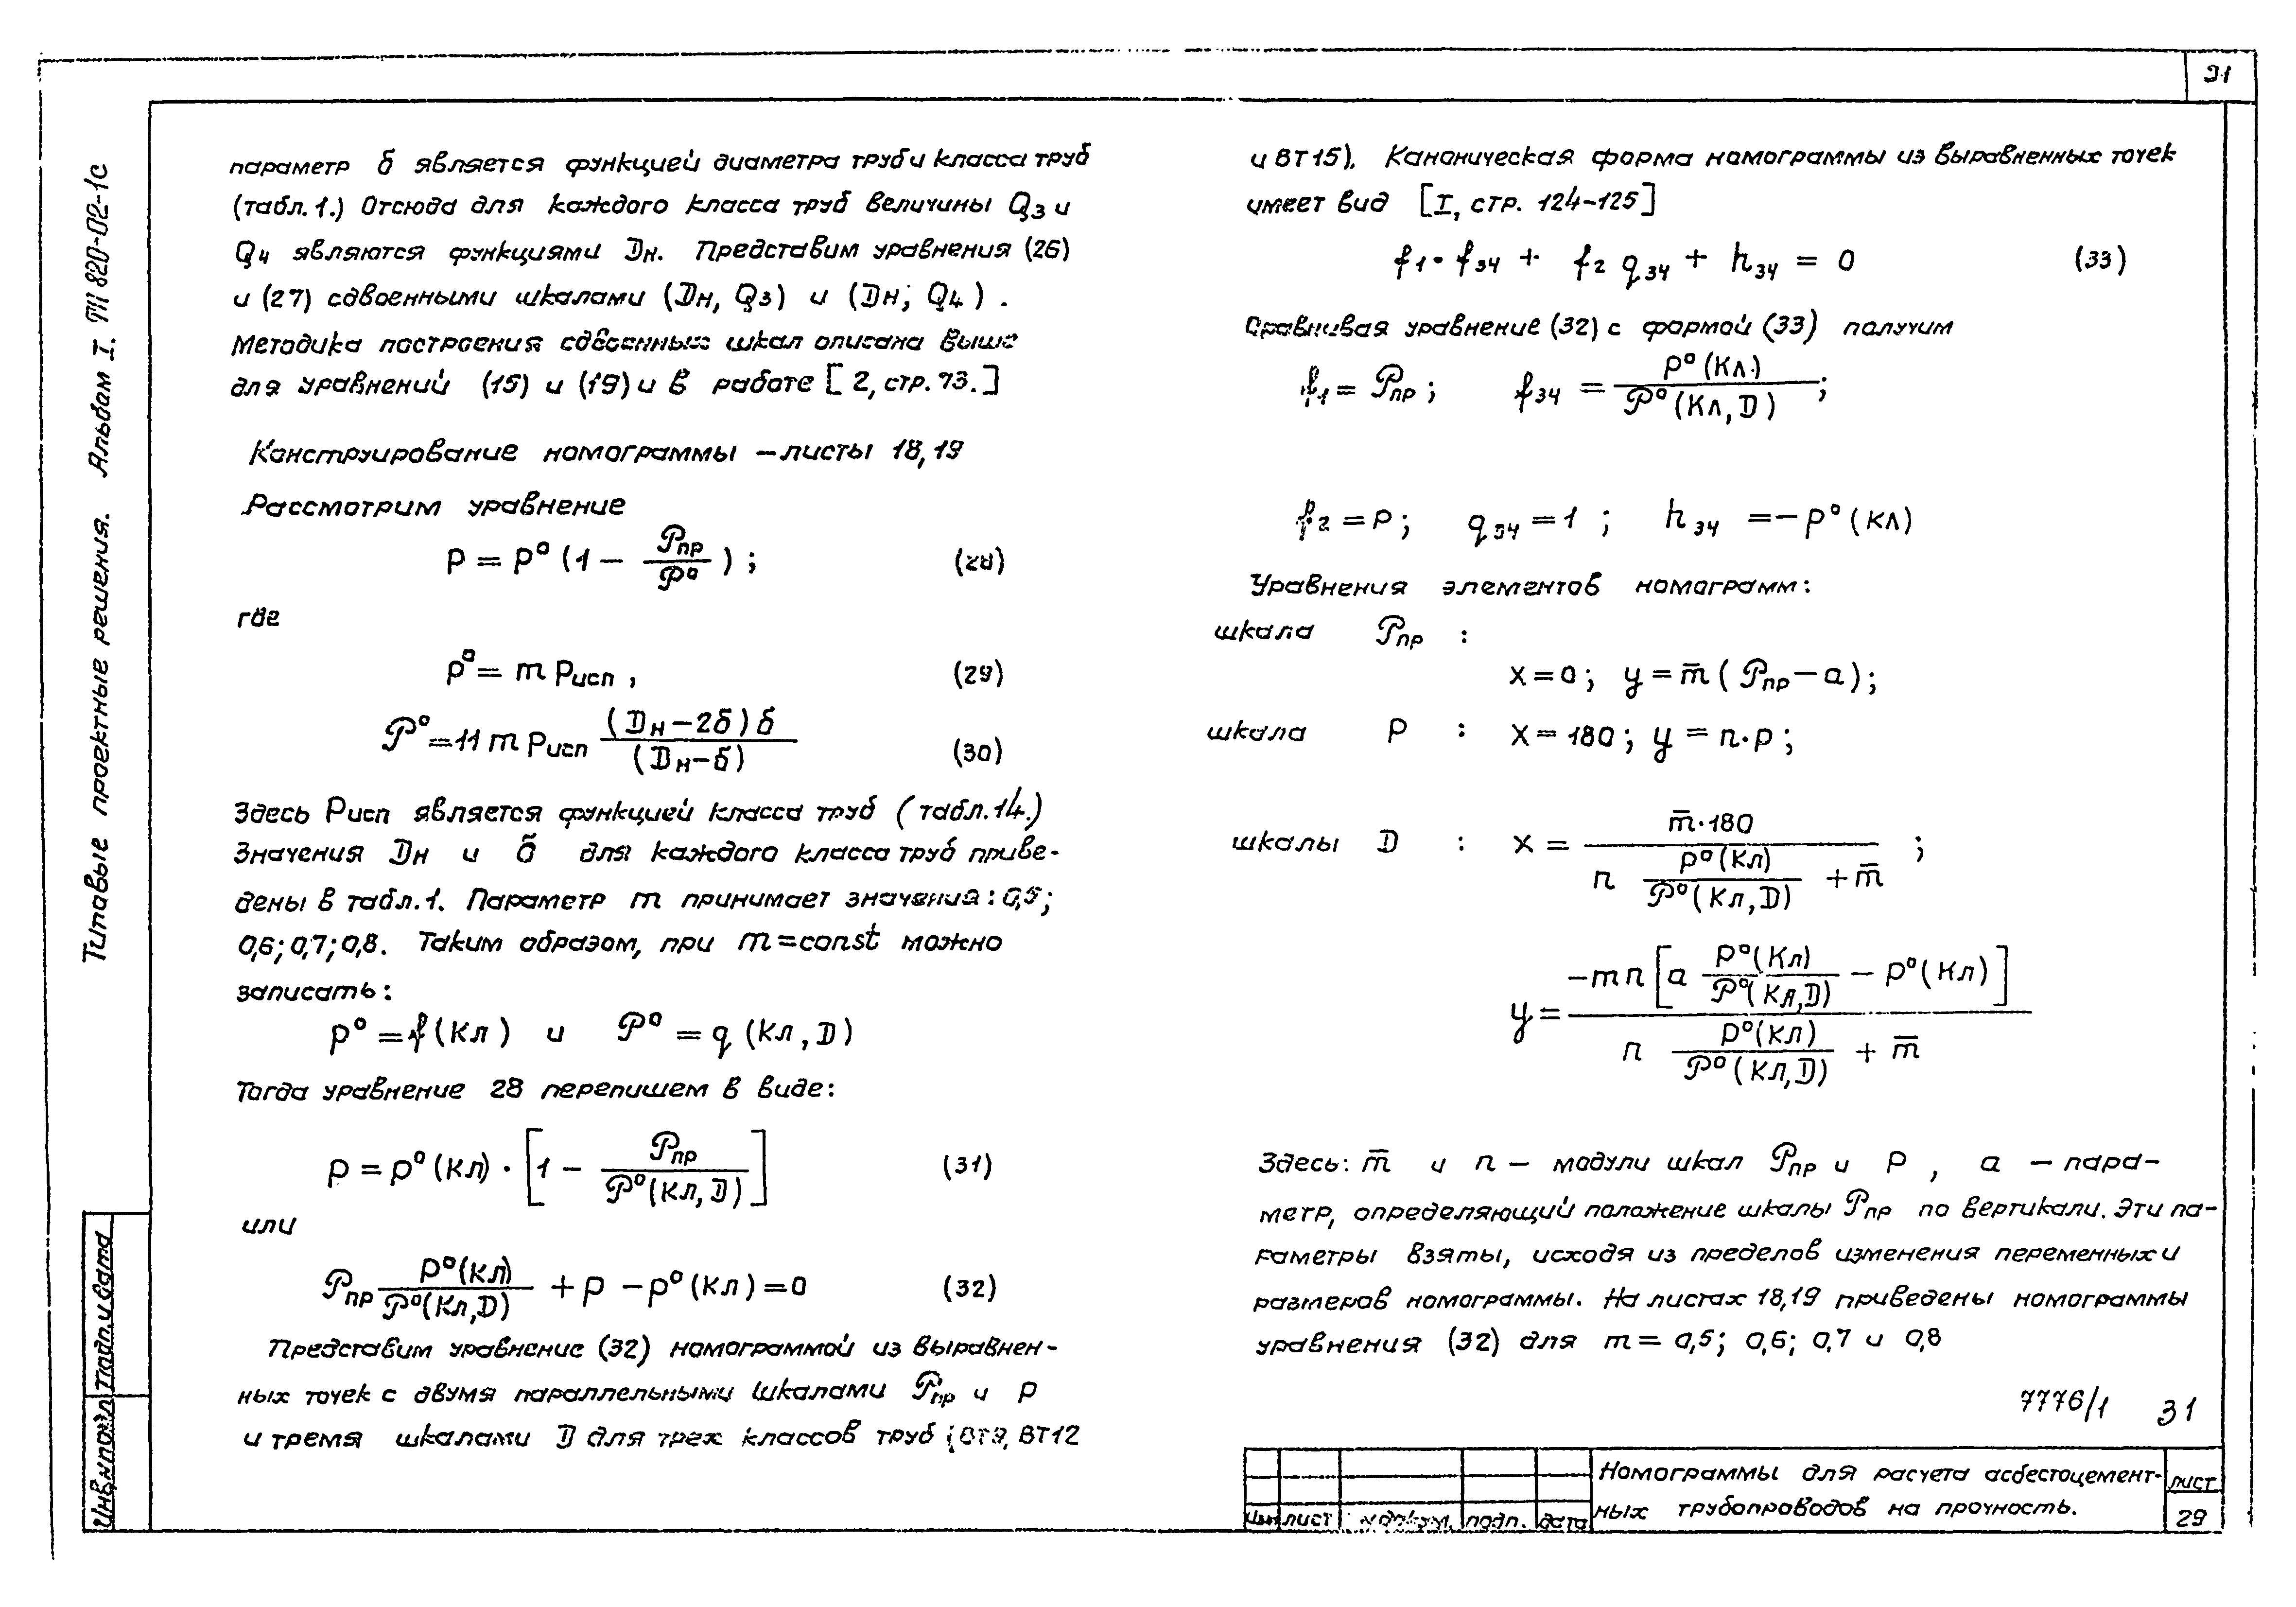 31
Типовые проектные решения. Альбом I. ТП 820-02-1с
параметр б является функцией диаметра труб и класса труб
(табл. 1.) Отсюда для каждого класса труб величины Q₃ и
Q₄ являются функциями Dн. Представим уравнения (26)
и (27) сдвоенными шкалами (Dн, Q₃) и (Dн; Q₄).
Методика построения сдвоенных шкал описана выше
для уравнений (15) и (19) и в работе [2, стр. 73.]
Конструирование номограммы – листы 18, 19
Рассмотрим уравнение
p = p⁰ (1 – 𝒫пр / 𝒫⁰); (28)
где
p⁰ = m Pисп, (29)
𝒫⁰ = 11 m Pисп (Dн – 2б) б / (Dн – б) (30)
Здесь Pисп является функцией класса труб (табл. 14.)
Значения Dн и б для каждого класса труб приве-
дены в табл. 1. Параметр m принимает значения: 0,5;
0,6; 0,7; 0,8. Таким образом, при m = const можно
записать:
p⁰ = f (Кл) и 𝒫⁰ = q (Кл, D)
Тогда уравнение 28 перепишем в виде:
p = p⁰ (Кл) · [1 – 𝒫пр / 𝒫⁰ (Кл, D)] (31)
или
𝒫пр p⁰(Кл) / 𝒫⁰(Кл, D) + p – p⁰ (Кл) = 0 (32)
Представим уравнение (32) номограммой из выравнен-
ных точек с двумя параллельными шкалами 𝒫пр и p
и тремя шкалами D для трех классов труб (ВТ9, ВТ12
и ВТ15). Каноническая форма номограммы из выравненных точек
имеет вид [I, стр. 124-125]
f₁ · f₃₄ + f₂ q₃₄ + h₃₄ = 0 (33)
Сравнивая уравнение (32) с формой (33) получим
f₁ = 𝒫пр; f₃₄ = p⁰ (Кл.) / 𝒫⁰ (Кл, D);
f₂ = p; q₃₄ = 1; h₃₄ = – p⁰ (Кл)
Уравнения элементов номограмм:
шкала 𝒫пр :
x = 0; y = m̄ (𝒫пр – a);
шкала p : x = 180; y = n · p;
шкалы D : x = m̄ · 180 / (n p⁰(Кл) / 𝒫⁰(Кл, D) + m̄);
y = –mn [a p⁰(Кл) / 𝒫⁰(Кл, D) – p⁰(Кл)] / (n p⁰(Кл) / 𝒫⁰(Кл, D) + m̄)
Здесь: m̄ и n – модули шкал 𝒫пр и p, a – пара-
метр, определяющий положение шкалы 𝒫пр по вертикали. Эти па-
раметры взяты, исходя из пределов изменения переменных и
размеров номограммы. На листах 18,19 приведены номограммы
уравнения (32) для m = 0,5; 0,6; 0,7 и 0,8
7776/1 31
Инв.№подл Подп. и дата
Изм лист № докум. подп. дата
Номограммы для расчета асбестоцемент-
ных трубопроводов на прочность.
лист
29